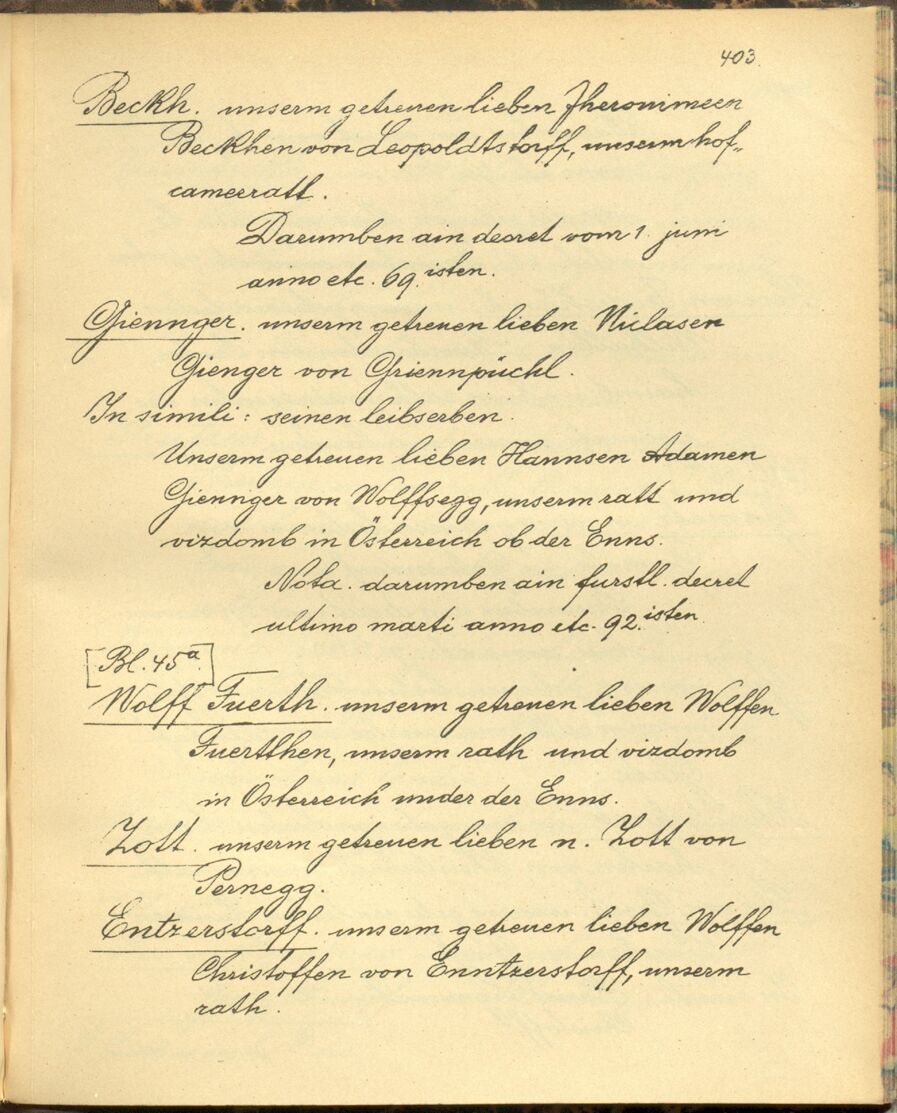 403.
Beckh. unserm getreuen lieben Jheronimeen
Beckhen von Leopoldtstorff, unserm hof-
camerratt.
Darumben ain decret vom 1. juni
anno etc. 69.isten.
Giennger. unserm getreuen lieben Niclasen
Gienger von Griennpüchl.
In simili: seinen leibserben.
Unserm getreuen lieben Hannsen Adamen
Gienger von Wolffsegg, unserm ratt und
vizdomb in Österreich ob der Enns.
Nota. darumben ain furstl. decret
ultimo marti anno etc. 92.isten.
[Bl. 45a.]
Wolff Fuerth. unserm getreuen lieben Wolffen
Fuertthen, unserm rath und vizdomb
in Österreich under der Enns.
Zott. unserm getreuen lieben n. Zott von
Pernegg.
Entzerstorff. unserm getreuen lieben Wolffen
Christoffen von Enntzerstorff, unserm
rath.